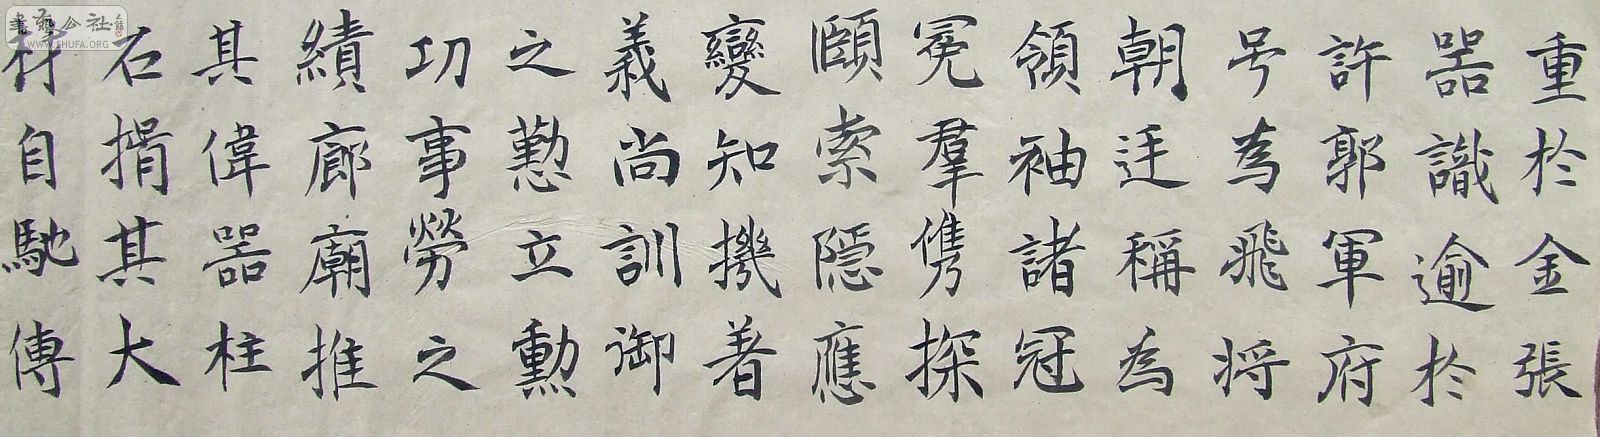 重於金張
器識逾於
許郭軍府
号為飛将
朝廷稱為
領袖諸冠
冕羣儁探
頤索隠應
變知機者
義尚訓御
之懃立勳
功事勞之
績廊廟推
其偉器柱
石揖其大
材自馳傳
WWW.SHUFA.ORG